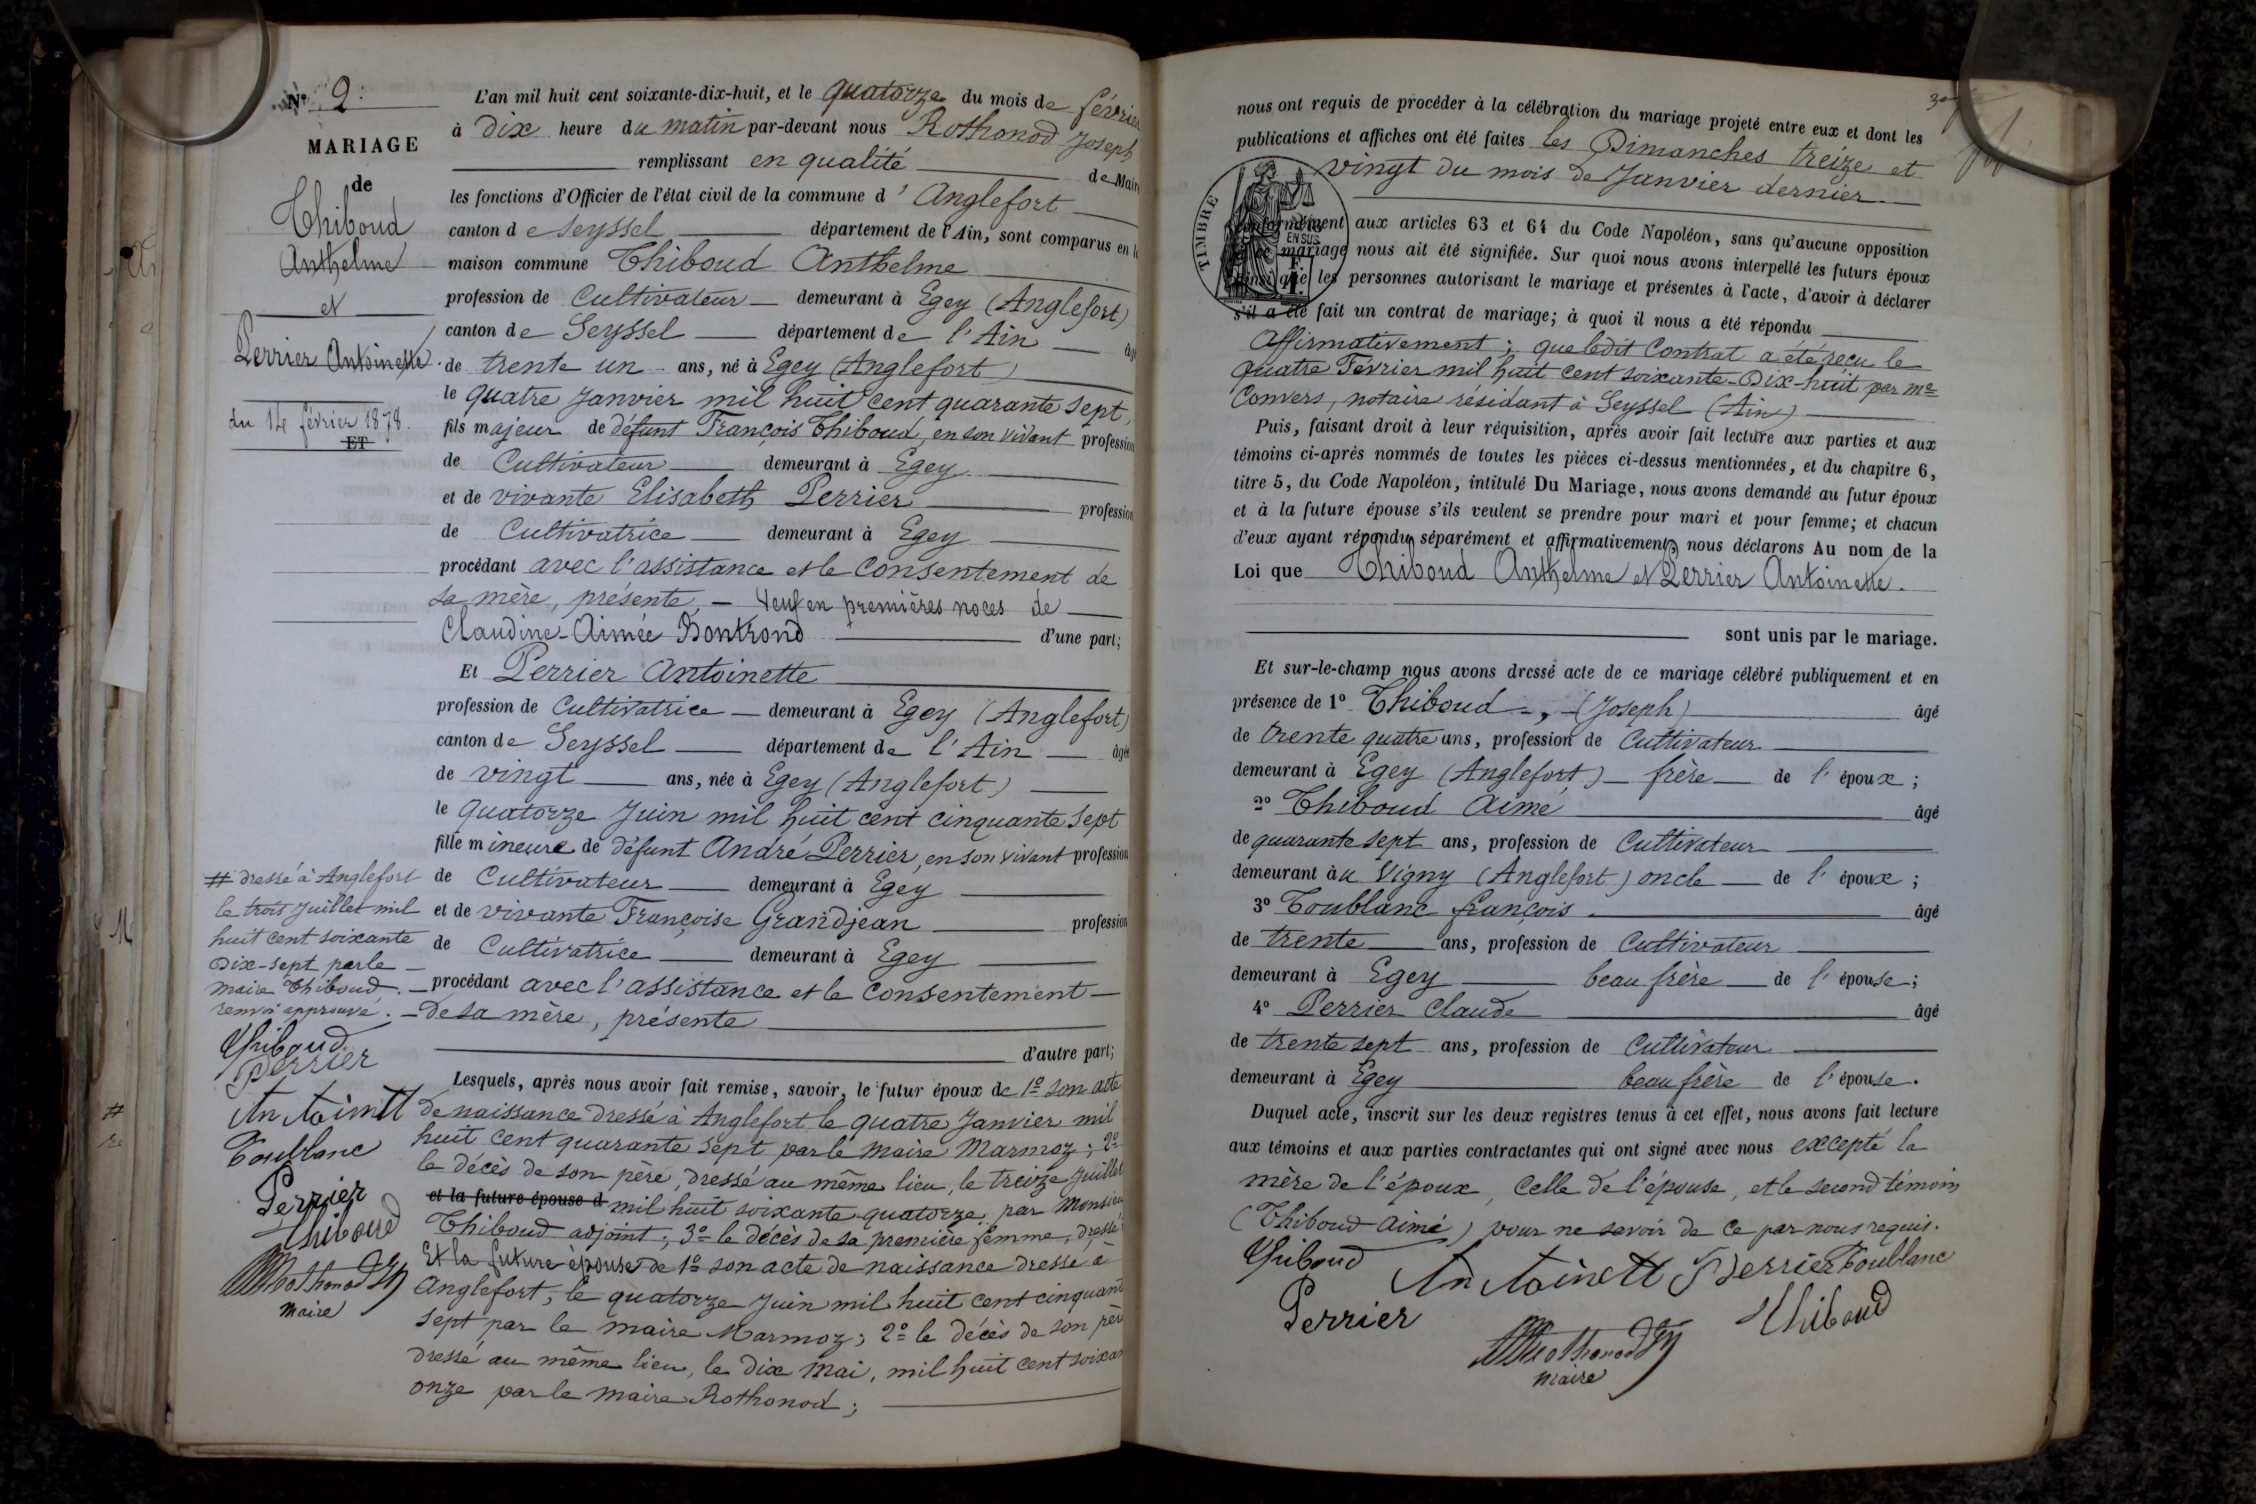 N° 2.
MARIAGE
de
Thiboud
Anthelme
et
Perrier Antoinette.
du 14 février 1878.
ET
L'an mil huit cent soixante-dix-huit, et le quatorze du mois de février
à dix heure du matin par-devant nous Rothonod Joseph
remplissant en qualité de Maire
les fonctions d'Officier de l'état civil de la commune d'Anglefort
canton de Seyssel département de l'Ain, sont comparus en la
maison commune Thiboud Anthelme
profession de Cultivateur demeurant à Egey (Anglefort)
canton de Seyssel département de l'Ain âgé
de trente un ans, né à Egey (Anglefort)
le quatre Janvier mil huit cent quarante sept,
fils majeur de défunt François Thiboud, en son vivant profession
de Cultivateur demeurant à Egey
et de vivante Elisabeth Perrier profession
de Cultivatrice demeurant à Egey
procédant avec l'assistance et le consentement de
sa mère, présente, – Veuf en premières noces de
Claudine-Aimée Bontrond d'une part;
Et Perrier Antoinette
profession de Cultivatrice demeurant à Egey (Anglefort)
canton de Seyssel département de l'Ain âgée
de vingt ans, née à Egey (Anglefort)
le quatorze Juin mil huit cent cinquante sept
fille mineure de défunt André Perrier, en son vivant profession
de Cultivateur demeurant à Egey
et de vivante Françoise Grandjean profession
de Cultivatrice demeurant à Egey
procédant avec l'assistance et le consentement
de sa mère, présente
d'autre part;
Lesquels, après nous avoir fait remise, savoir, le futur époux de 1° son acte
de naissance dressé à Anglefort le quatre Janvier mil
huit cent quarante sept par le maire Marmoz; 2°
le décès de son père, dressé au même lieu, le treize Juillet
et la future épouse d mil huit soixante-quatorze, par Monsieur
Thiboud adjoint; 3° le décès de sa première femme, dressé #
Et la future épouse de 1° son acte de naissance dressé à
Anglefort, le quatorze Juin mil huit cent cinquante
sept par le maire Marmoz; 2° le décès de son père
dressé au même lieu, le dix Mai, mil huit cent soixante
onze par le maire Rothonod;
# dressé à Anglefort
le trois Juillet mil
huit cent soixante
Dix-sept par le
maire Thiboud.
renvoi approuvé.
Thiboud
Perrier
Antoinett
Toublanc
Perrier
Thiboud
Rothonod Jh
maire
nous ont requis de procéder à la célébration du mariage projeté entre eux et dont les
publications et affiches ont été faites les Dimanches treize et
vingt du mois de Janvier dernier.
TIMBRE
conformément aux articles 63 et 64 du Code Napoléon, sans qu'aucune opposition
mariage nous ait été signifiée. Sur quoi nous avons interpellé les futurs époux
ainsi que les personnes autorisant le mariage et présentes à l'acte, d'avoir à déclarer
s'il a été fait un contrat de mariage; à quoi il nous a été répondu
Affirmativement; que ledit Contrat a été reçu le
quatre Février mil huit cent soixante-Dix-huit par me
Convers, notaire résidant à Seyssel (Ain)
Puis, faisant droit à leur réquisition, après avoir fait lecture aux parties et aux
témoins ci-après nommés de toutes les pièces ci-dessus mentionnées, et du chapitre 6,
titre 5, du Code Napoléon, intitulé Du Mariage, nous avons demandé au futur époux
et à la future épouse s'ils veulent se prendre pour mari et pour femme; et chacun
d'eux ayant répondu séparément et affirmativement, nous déclarons Au nom de la
Loi que Thiboud Anthelme et Perrier Antoinette.
sont unis par le mariage.
Et sur-le-champ nous avons dressé acte de ce mariage célébré publiquement et en
présence de 1° Thiboud, (Joseph) âgé
de trente quatre ans, profession de Cultivateur
demeurant à Egey (Anglefort) frère de l'époux;
2° Thiboud Aimé âgé
de quarante sept ans, profession de Cultivateur
demeurant àu Vigny (Anglefort) oncle de l'époux;
3° Toublanc françois âgé
de trente ans, profession de Cultivateur
demeurant à Egey beau frère de l'épouse;
4° Perrier Claude âgé
de trente sept ans, profession de Cultivateur
demeurant à Egey beau frère de l'épouse.
Duquel acte, inscrit sur les deux registres tenus à cet effet, nous avons fait lecture
aux témoins et aux parties contractantes qui ont signé avec nous excepté la
mère de l'époux, celle de l'épouse, et le second témoin
(Thiboud Aimé) pour ne savoir de ce par nous requis.
Thiboud Antoinett Perrier Toublanc
Perrier Thiboud
Rothonod Jh
maire